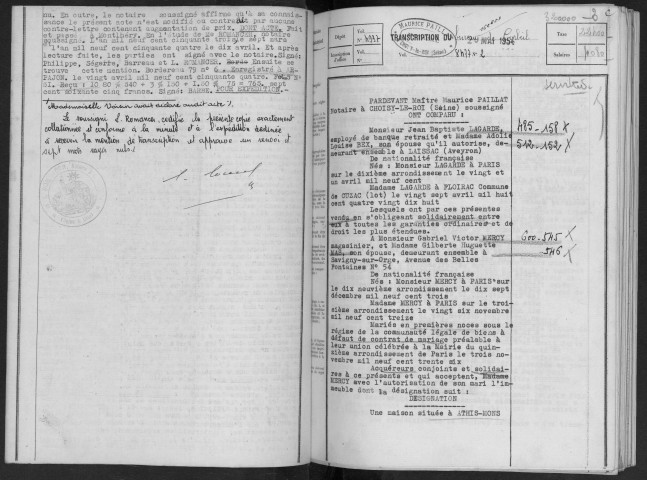 nu. En outre, le notaire soussigné affirme qu'à sa connais-
sance le présent acte n'est modifié ou contredit par aucune
contre-lettre contenant augmentation de prix. DONT ACTE. Fait
et passé à Montlhéry. En l'étude de Me ROMANGER, notaire
soussigné. L'an mil neuf cent cinquante quatre sept mars
l'an mil neuf cent cinquante quatre le dix avril. Et après
lecture faite, les parties ont signé avec le notaire. Signé:
Philippe, Ségxète, Barreau et L. ROMANGER. Ensuite se
trouve cette mention. Bordereau 79 n° 6 Enregistré à AR-
PAJON. Le vingt avril mil neuf cent cinquante quatre.
sept
cent soixante cinq francs. Signé: BARGE. POUR EXPEDITION.
Mademoiselle Voisin ayant déclaré audit acte
Le soussigné L. Romanger, certifie la présente copie exactement
collationnée et conforme à la minute et à l'expédition destinée
à recevoir la mention de transcription et approuve un renvoi et
sept mots rayés nuls
Vol.
N°
TRANSCRIPTION DU
MAURICE PAILLAT
1954
Vol.
Inscription
d'office
N°
Taxe
Salaires
PARDEVANT Maître Maurice PAILLAT
Notaire à CHOISY-LE-ROI (Seine) soussigné
ONT COMPARU :
Monsieur Jean Baptiste LAGARDE, 485-158 X
employé de banque retraité et Madame Adolie
Louise BEX, son épouse qu'il autorise, de- 512-152 X
meurant ensemble à LAISSAC (Aveyron)
De nationalité française
Nés : Monsieur LAGARDE à PARIS
sur le dixième arrondissement le vingt et
un avril mil neuf cent
Madame LAGARDE à FLOIRAC Commune
de CUZAC (lot) le vingt sept avril mil huit
cent quatre vingt dix huit
Lesquels ont par ces présentes
vendu en s'obligeant solidairement entre
eux à toutes les garanties ordinaires et de
droit les plus étendues.
A Monsieur Gabriel Victor MERCY 600-545 X
magasinier, et Madame Gilberte Huguette
MAS, son épouse, demeurant ensemble à 546 X
Savigny-sur-Orge, Avenue des Belles
Fontaines N° 54
De nationalité française
Nés : Monsieur MERCY à PARIS sur
le dix neuvième arrondissement le dix sept
décembre mil neuf cent trois
Madame MERCY à PARIS sur le troi-
xième arrondissement le vingt six novembre
mil neuf cent treize
Mariés en premières noces sous le
régime de la communauté légale de biens à
défaut de contrat de mariage préalable à
leur union célébrée à la Mairie du quin-
xième arrondissement de Paris le trois no-
vembre mil neuf cent trente six
Acquéreurs conjoints et solidai-
res à ce présents et qui acceptent, Madame
MERCY avec l'autorisation de son mari l'im-
meuble dont la désignation suit :
DESIGNATION
Une maison située à ATHIS-MONS